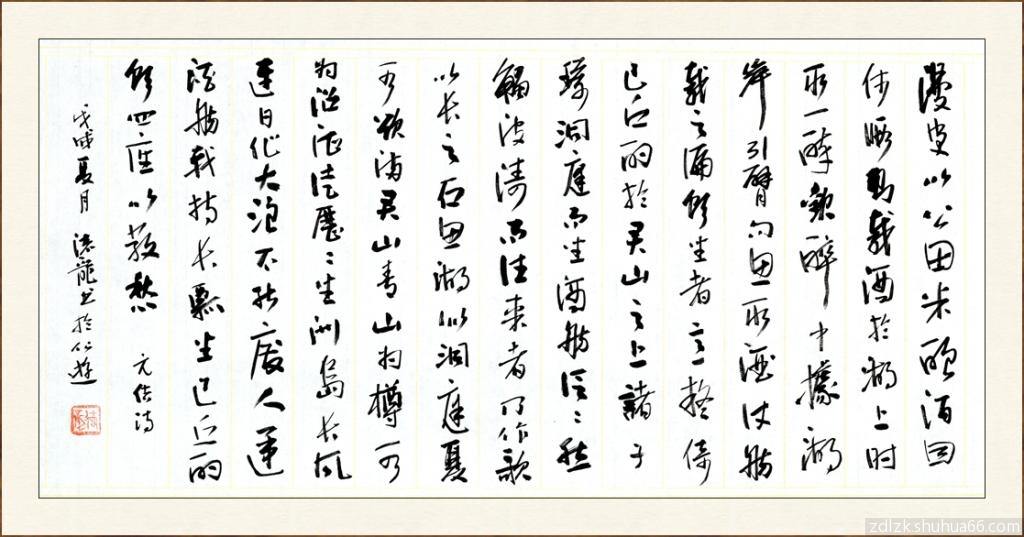 漫叟以公田米酿酒因
休暇则载酒於湖上时
取一醉歡醉中據湖
岸引臂向鱼取酒使舫
载之遍飲坐者意疑倚
巴丘酌於君山之上諸子
環洞庭而坐酒舫泛々然
觸波濤而往来者乃作歌
以长之石鱼湖似洞庭夏
水欲满君山青山为樽水
为沼酒徒歷々坐洲島长风
連日作大浪不能废人運
酒舫我持长瓢坐巴丘酌
飲四座以散愁 元结詩
戊戌夏月 龍书於仙遊
zdlzk.shuhua66.com